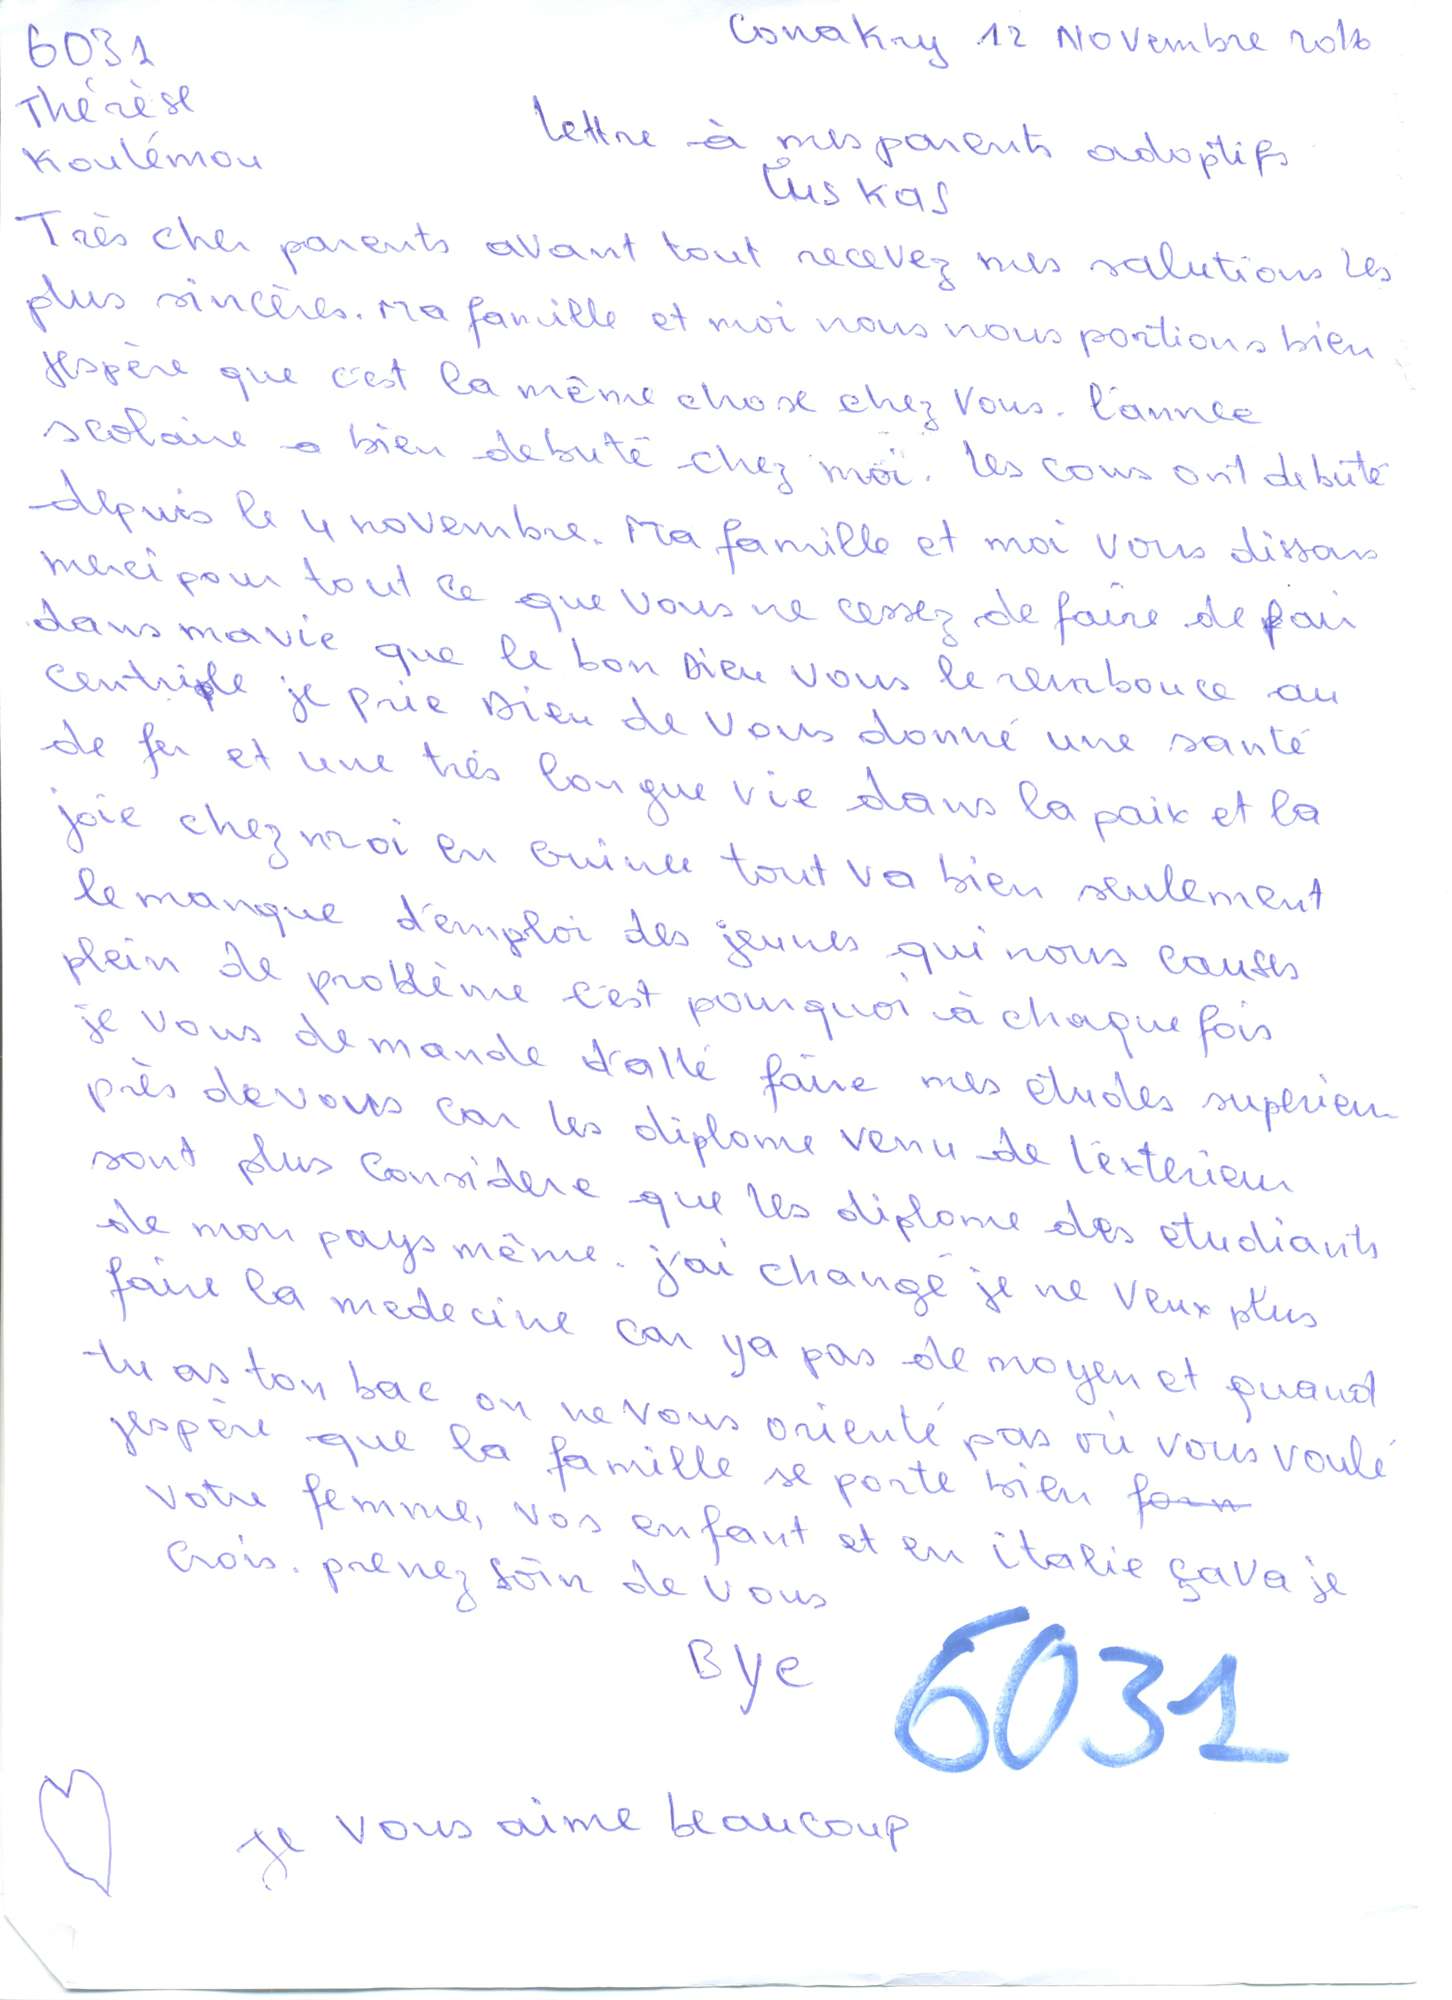 6031
Conakry 12 Novembre 2016
Thérèse
Koulémou
Lettre à mes parents adoptifs
Luskas
Très cher parents avant tout recevez mes salutions les
plus sincères. Ma famille et moi nous nous portions bien
jespère que c'est la même chose chez vous. l'année
scolaire a bien debuté chez moi. les cours ont debuté
depuis le 4 novembre. Ma famille et moi vous dissons
merci pour tout ce que vous ne cessez de faire de fair
dans ma vie que le bon Dieu vous le rembource au
centriple je prie Dieu de vous donné une santé
de fer et une très longue vie dans la paix et la
joie chez moi en Guinee tout va bien seulement
le manque d'emploi des jeunes qui nous causes
plein de problème c'est pourquoi à chaque fois
je vous demande d'allé faire mes études superieur
près de vous car les diplome venu de l'exterieur
sont plus considere que les diplome des etudiants
de mon pays même. j'ai changé je ne veux plus
faire la medecine car ya pas de moyen et quand
tu as ton bac on ne vous orienté pas où vous voulé
jespère que la famille se porte bien
votre femme, vos enfant et en italie çava je
crois. prenez soin de vous
Bye
6031
Je vous aime beaucoup